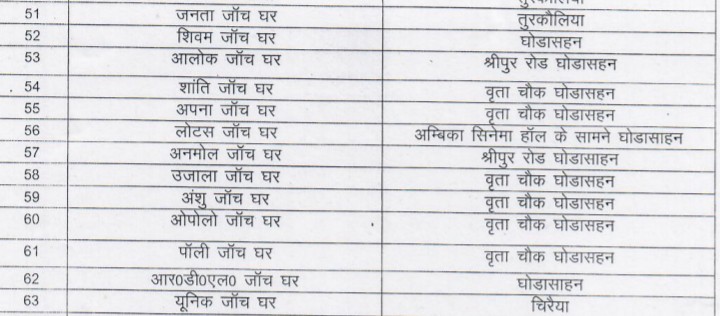 तुरकौलिया
51 जनता जॉच घर तुरकौलिया
52 शिवम जॉच घर घोडासहन
53 आलोक जॉच घर श्रीपुर रोड घोडासहन
54 शांति जॉच घर वृता चौक घोडासहन
55 अपना जॉच घर वृता चौक घोडासहन
56 लोटस जॉच घर अम्बिका सिनेमा हॉल के सामने घोडासाहन
57 अनमोल जॉच घर श्रीपुर रोड घोडासाहन
58 उजाला जॉच घर वृता चौक घोडासहन
59 अंशु जॉच घर वृता चौक घोडासहन
60 ओपोलो जॉच घर वृता चौक घोडासहन
61 पॉली जॉच घर वृता चौक घोडासहन
62 आर0डी0एल0 जॉच घर घोडासाहन
63 यूनिक जॉच घर चिरैया